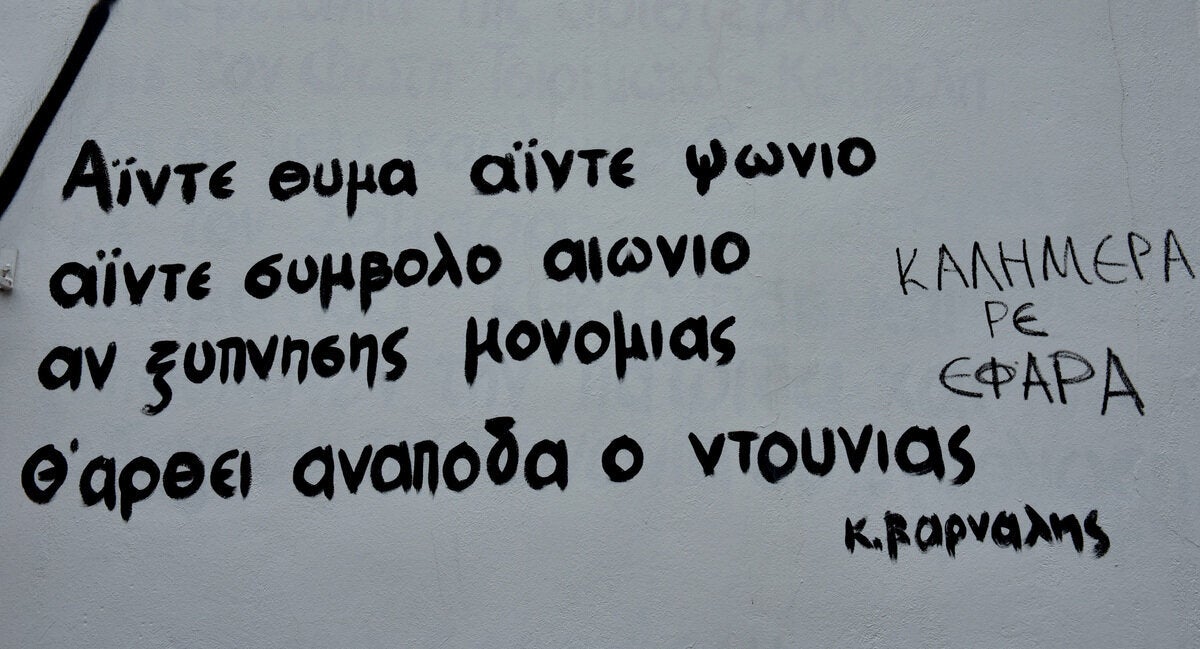 Αϊντε θυμα αϊντε ψωνιο
αϊντε συμβολο αιωνιο
αν ξυπνησης μονομιας
Θ'αρθει αναποδα ο ντουνιας
κ.βαρναλης
ΚΑΛΗΜΕΡΑ
ΡΕ
ΕΦΑΡΑ